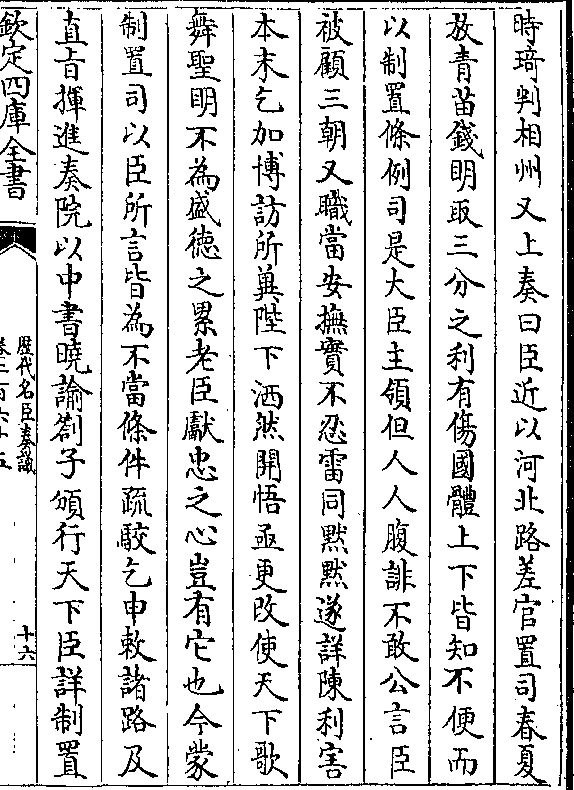 時琦判相州又上奏曰臣近以河北路差官置司春夏
放青苗錢明取三分之利有傷國體上下皆知不便而
以制置條例司是大臣主領但人人腹誹不敢公言臣
被顧三朝又職當安撫實不忍雷同黙黙遂詳陳利害
本末乞加博訪所兾陛下洒然開悟亟更改使天下歌
舞聖明不為盛徳之累老臣獻忠之心豈有它也今蒙
制置司以臣所言皆為不當條件疏駮乞申敕諸路及
直㫖揮進奏院以中書曉諭劄子頒行天下臣詳制置
欽定四庫全書
歴代名臣奏議
卷二百六十五
十六